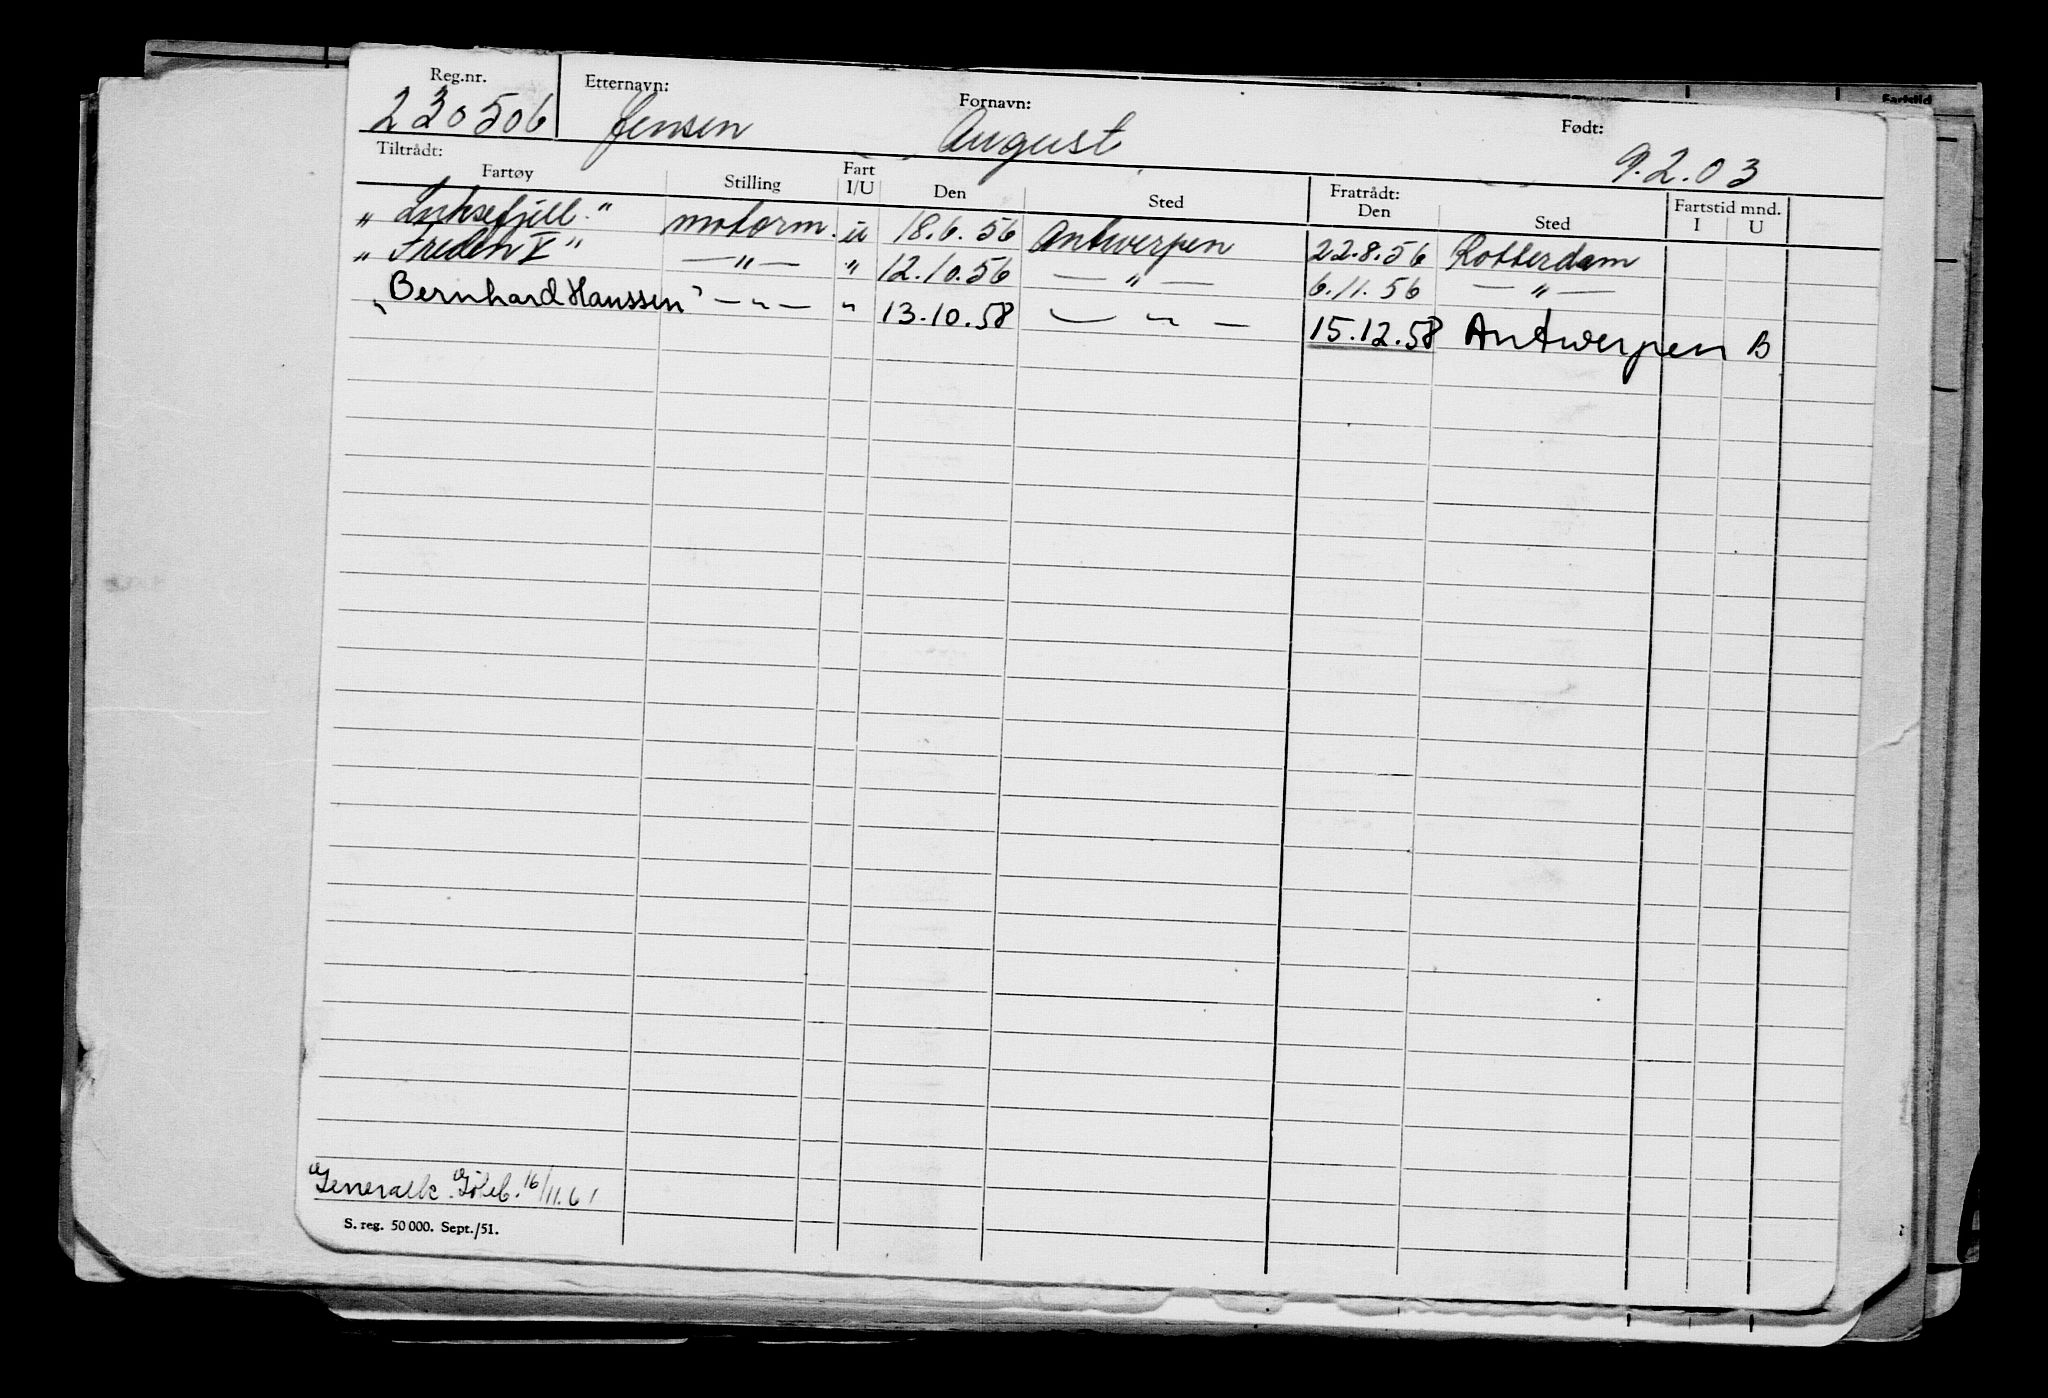 Reg.nr. Etternavn: Fornavn: Født:
230506 Jensen August 9.2.03
Tiltrådt: Fratrådt:
Fartøy Stilling Fart I/U Den Sted Den Sted Fartstid mnd. I U
"Luksefjell." motorm. u 18.6.56 Antwerpen 22.8.56 Rotterdam
" V" — " — " 12.10.56 — " — 6.11.56 — " —
"Bernhard Hanssen" — " — " 13.10.58 — " — 15.12.58 Antwerpen B
Generalk. Göteb. 16/11.61
S. reg. 50 000. Sept./51.
Fartstid